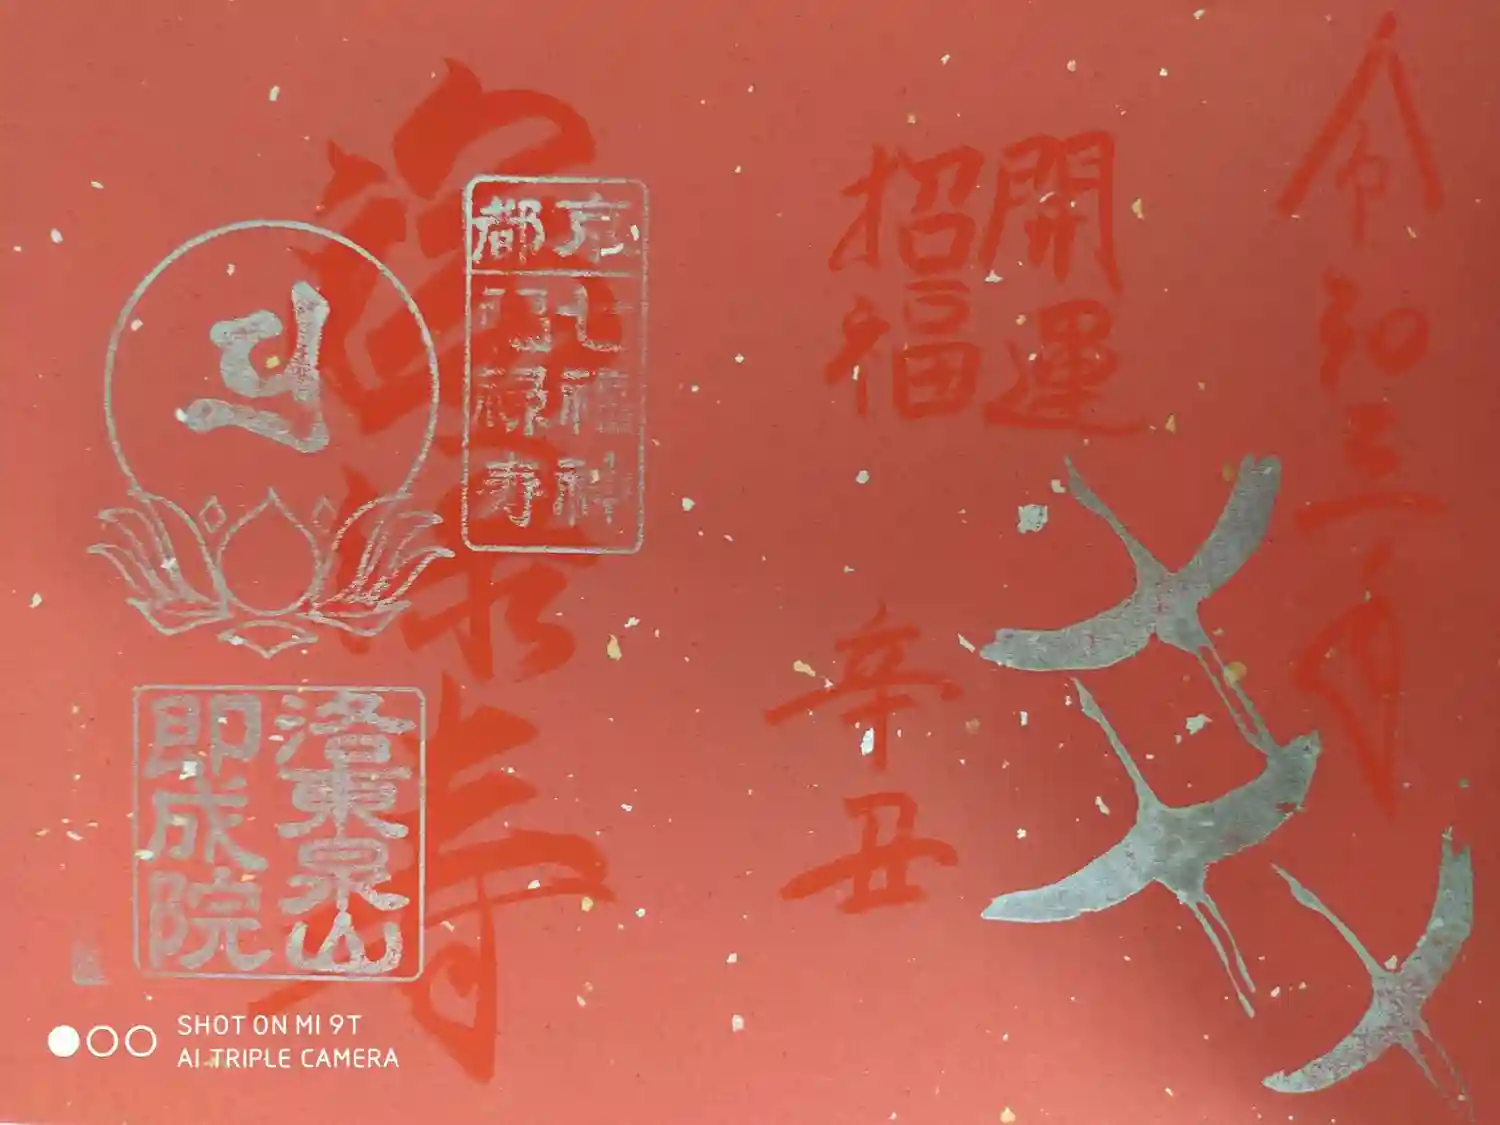 令和三年
開運
招福
辛丑
福禄寿
京都
七福神
福禄寿
洛東泉山
即成院
SHOT ON MI 9T
AI TRIPLE CAMERA